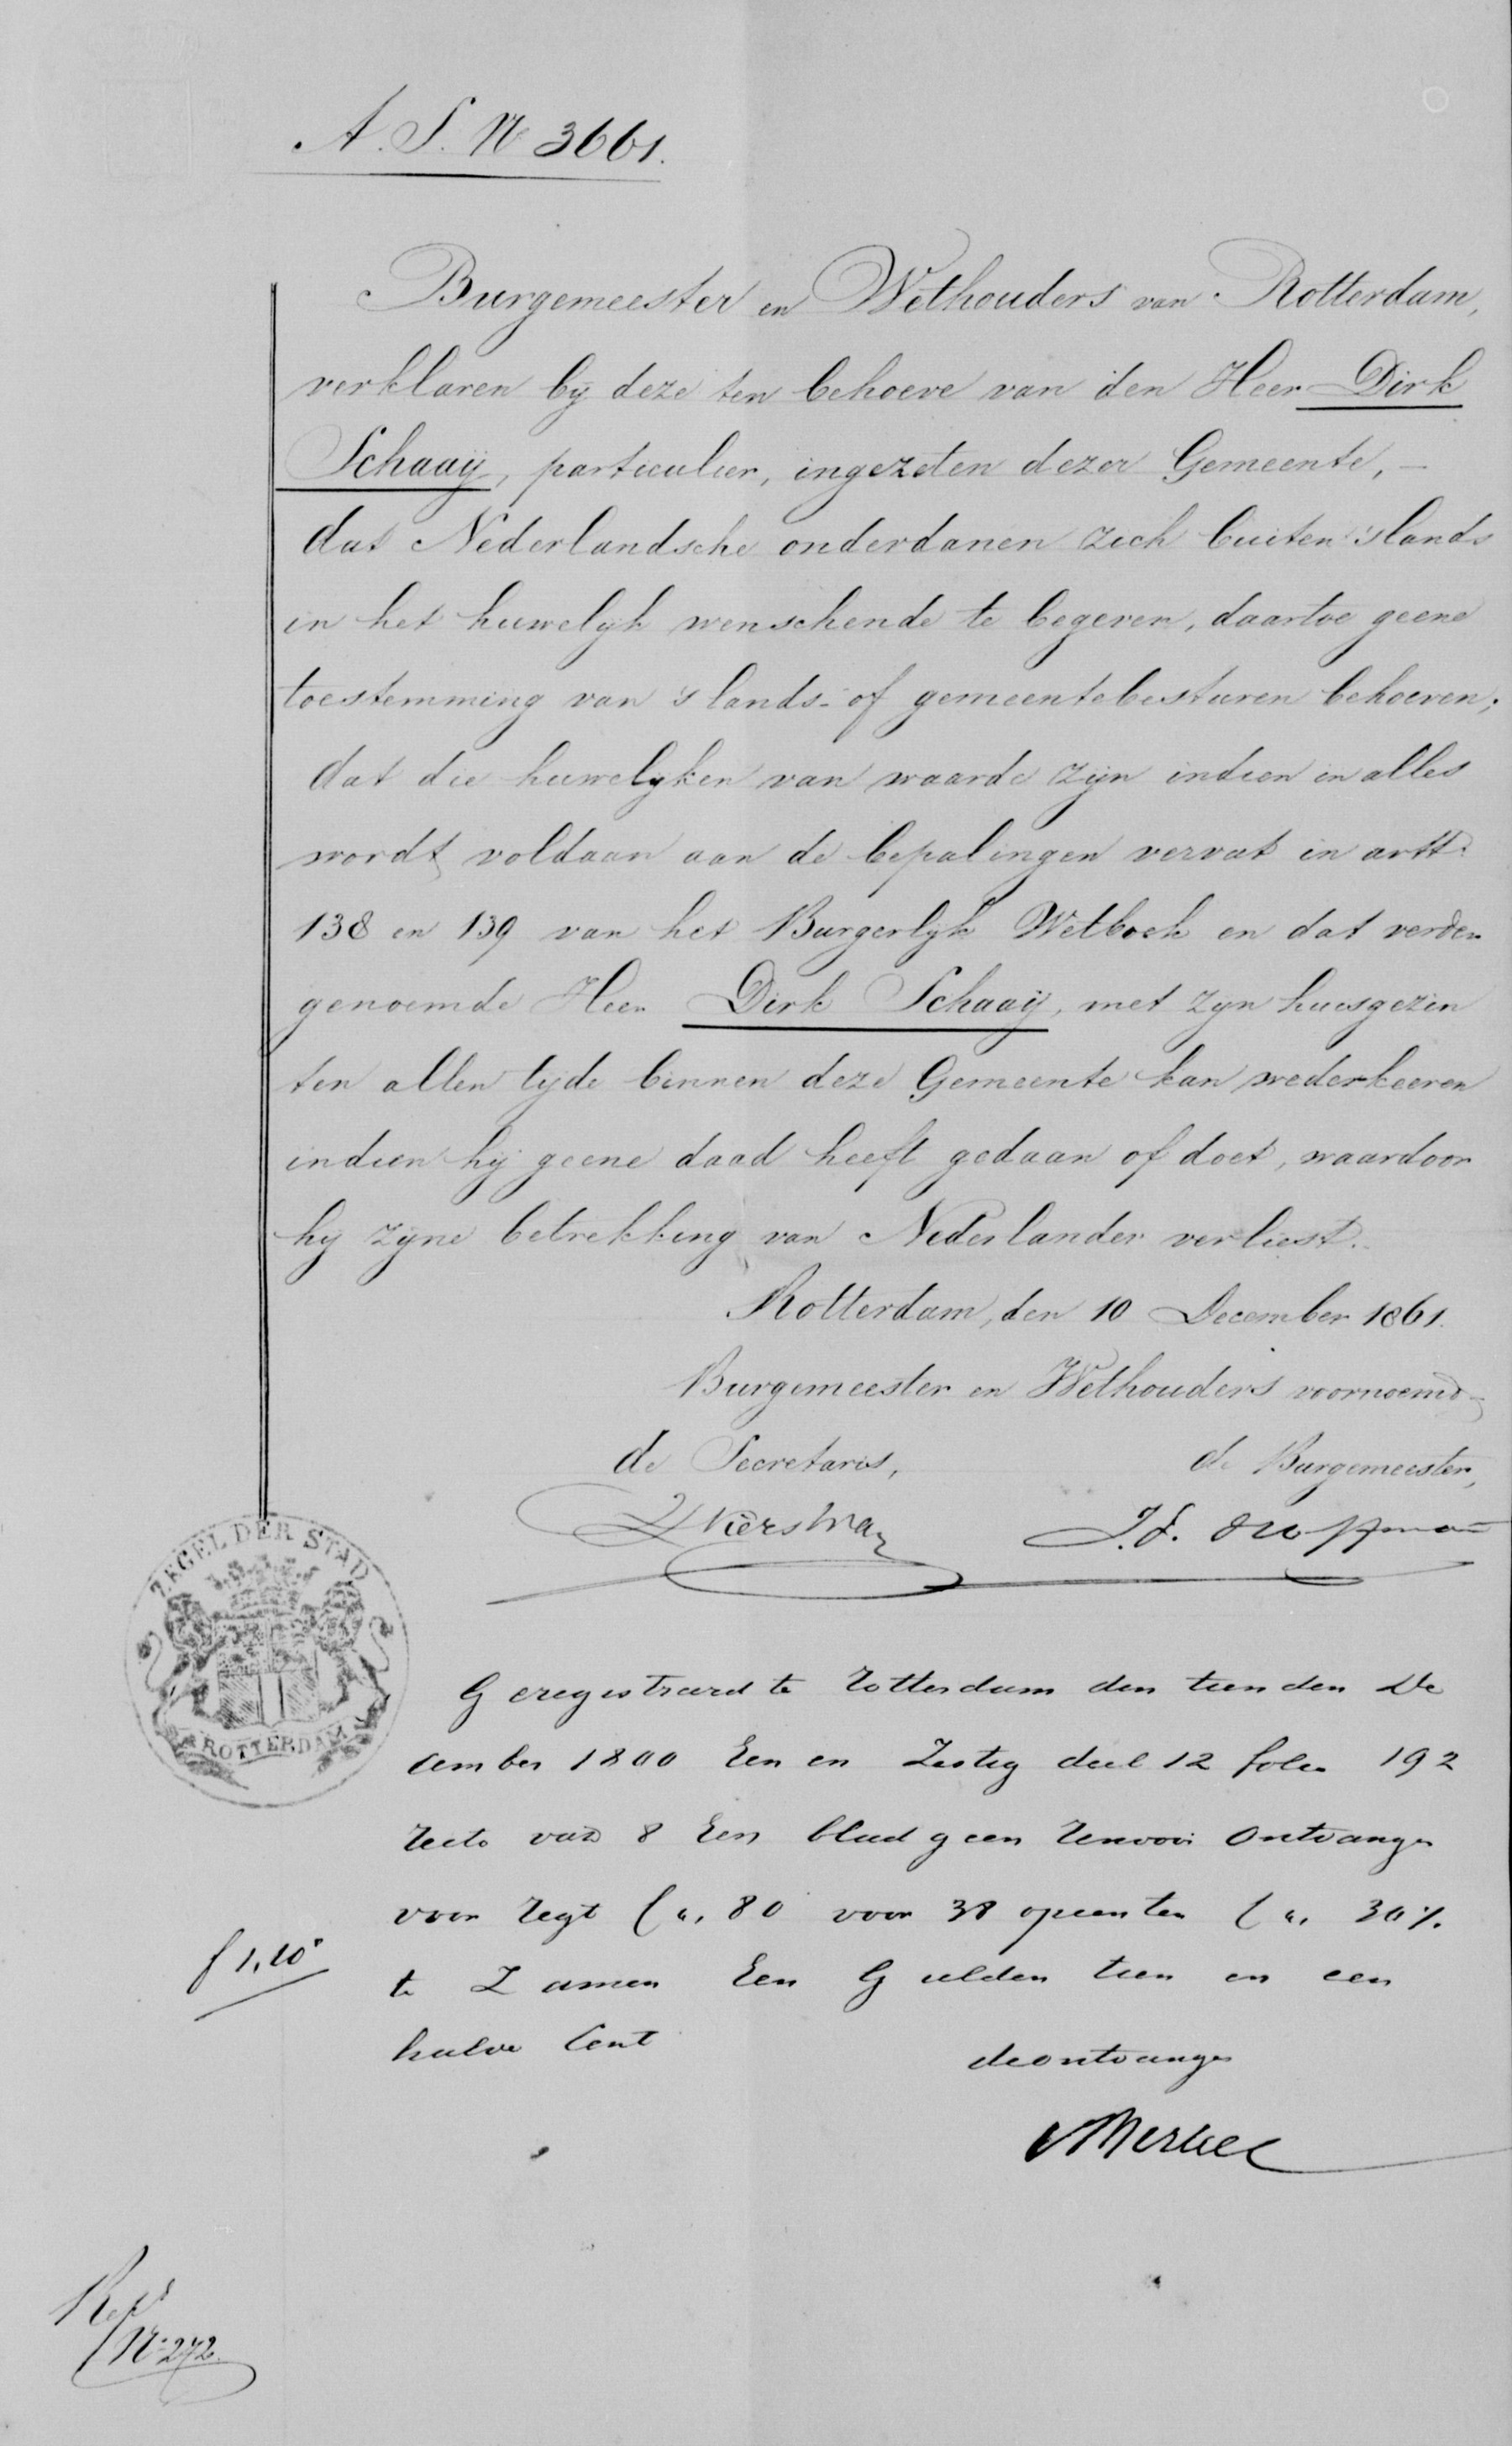 A.S. No 3661.
Burgemeester en Wethouders van Rotterdam,
verklaren bij deze ten behoeve van den Heer Dirk
Schaaij, particulier, ingezeten dezer Gemeente, –
dat Nederlandsche onderdanen zich buiten 'slands
in het huwelijk wenschende te begeven, daartoe geene
toestemming van 's lands- of gemeentebesturen behoeven;
dat die huwelijken van waarde zijn indien in alles
wordt voldaan aan de bepalingen vervat in artt.
138 en 139 van het Burgerlijk Wetboek en dat verder
genoemde Heer Dirk Schaaij, met zijn huisgezin
ten allen tijde binnen deze Gemeente kan wederkeeren
indien hij geene daad heeft gedaan of doet, waardoor
hij zijne betrekking van Nederlander verliest.
Rotterdam, den 10 December 1861.
Burgemeester en Wethouders voornoemd,
de Secretaris, de Burgemeester,
J.F. Hoffman
ZEGEL DER STAD
ROTTERDAM
Geregistreerd te Rotterdam den tienden De
cember 1800 Een en Zestig deel 12 folio 192
recto vak 8 Een blad geen renvooi Ontvangen
voor regt f ", 80 voor 38 opcenten f ", 30½
f 1,10⁵
te Zamen Een Gulden tien en een
halve Cent
de ontvanger
No. 272.